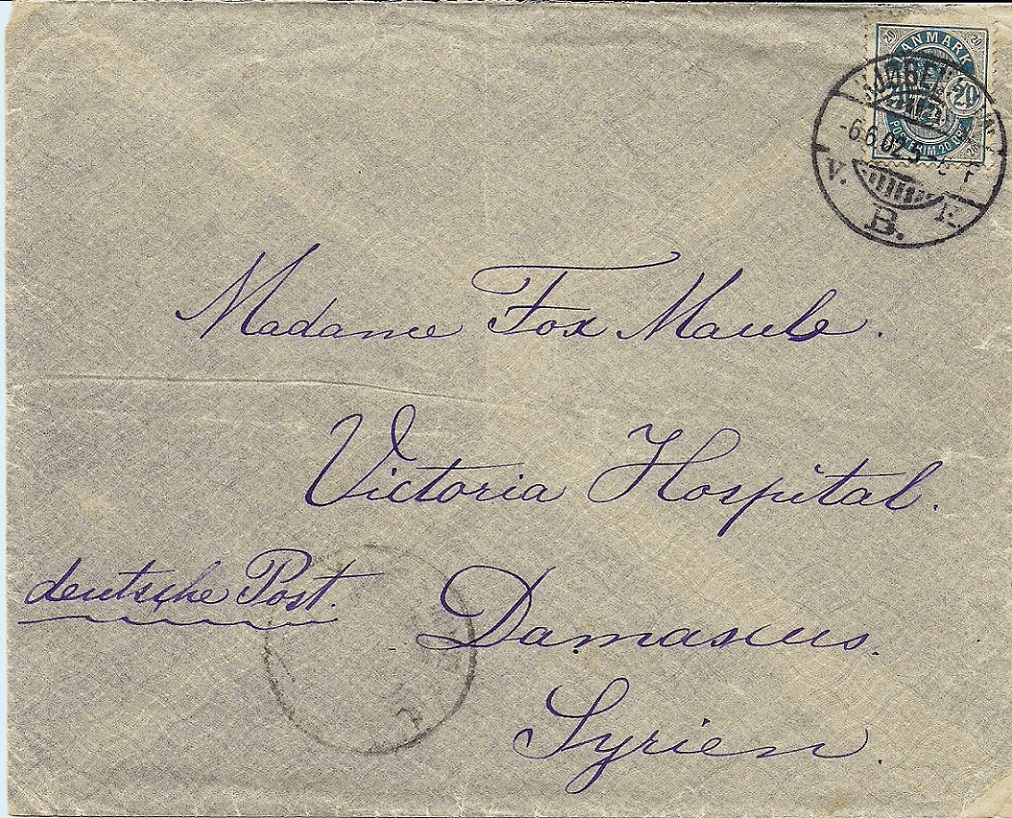 DANMARK
20 20
20
POSTFRIM. 20 ØRE
20
-6.6.02.5-
V. B.
Madame Fox Maule.
Victoria Hospital.
deutsche Post. Damascus.
Syrien.